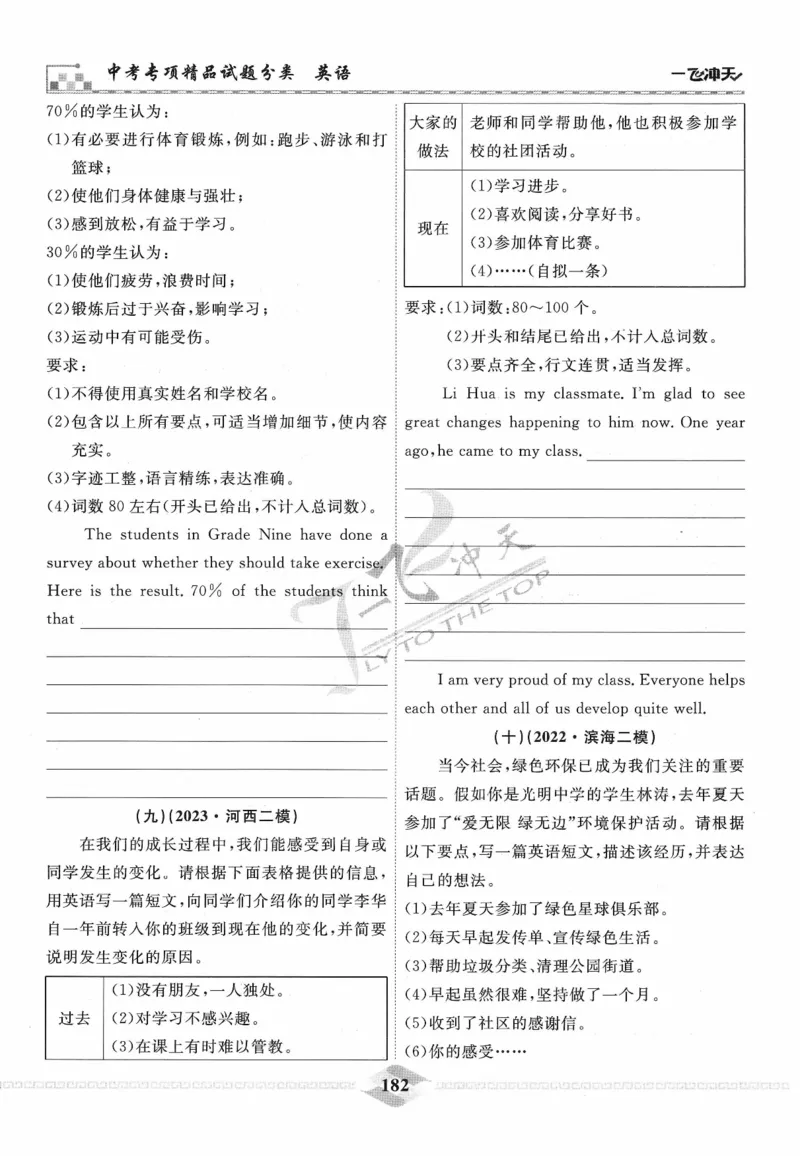 中考专项精品试题分类 英语
一飞冲天
70%的学生认为:
(1)有必要进行体育锻炼,例如:跑步、游泳和打
篮球;
(2)使他们身体健康与强壮;
(3)感到放松,有益于学习。
30%的学生认为:
(1)使他们疲劳,浪费时间;
(2)锻炼后过于兴奋,影响学习;
(3)运动中有可能受伤。
要求:
(1)不得使用真实姓名和学校名。
(2)包含以上所有要点,可适当增加细节,使内容
充实。
(3)字迹工整,语言精练,表达准确。
(4)词数 80 左右(开头已给出,不计入总词数)。
The students in Grade Nine have done a
survey about whether they should take exercise.
Here is the result. 70% of the students think
that
(九)(2023·河西二模)
在我们的成长过程中,我们能感受到自身或
同学发生的变化。请根据下面表格提供的信息,
用英语写一篇短文,向同学们介绍你的同学李华
自一年前转入你的班级到现在他的变化,并简要
说明发生变化的原因。
过去
(1)没有朋友,一人独处。
(2)对学习不感兴趣。
(3)在课上有时难以管教。
大家的
做法
老师和同学帮助他,他也积极参加学
校的社团活动。
现在
(1)学习进步。
(2)喜欢阅读,分享好书。
(3)参加体育比赛。
(4)……(自拟一条)
要求:(1)词数:80~100 个。
(2)开头和结尾已给出,不计入总词数。
(3)要点齐全,行文连贯,适当发挥。
Li Hua is my classmate. I'm glad to see
great changes happening to him now. One year
ago,he came to my class.
I am very proud of my class. Everyone helps
each other and all of us develop quite well.
(十)(2022·滨海二模)
当今社会,绿色环保已成为我们关注的重要
话题。假如你是光明中学的学生林涛,去年夏天
参加了“爱无限 绿无边”环境保护活动。请根据
以下要点,写一篇英语短文,描述该经历,并表达
自己的想法。
(1)去年夏天参加了绿色星球俱乐部。
(2)每天早起发传单、宣传绿色生活。
(3)帮助垃圾分类、清理公园街道。
(4)早起虽然很难,坚持做了一个月。
(5)收到了社区的感谢信。
(6)你的感受……
一飞冲天
FLY TO THE TOP
182